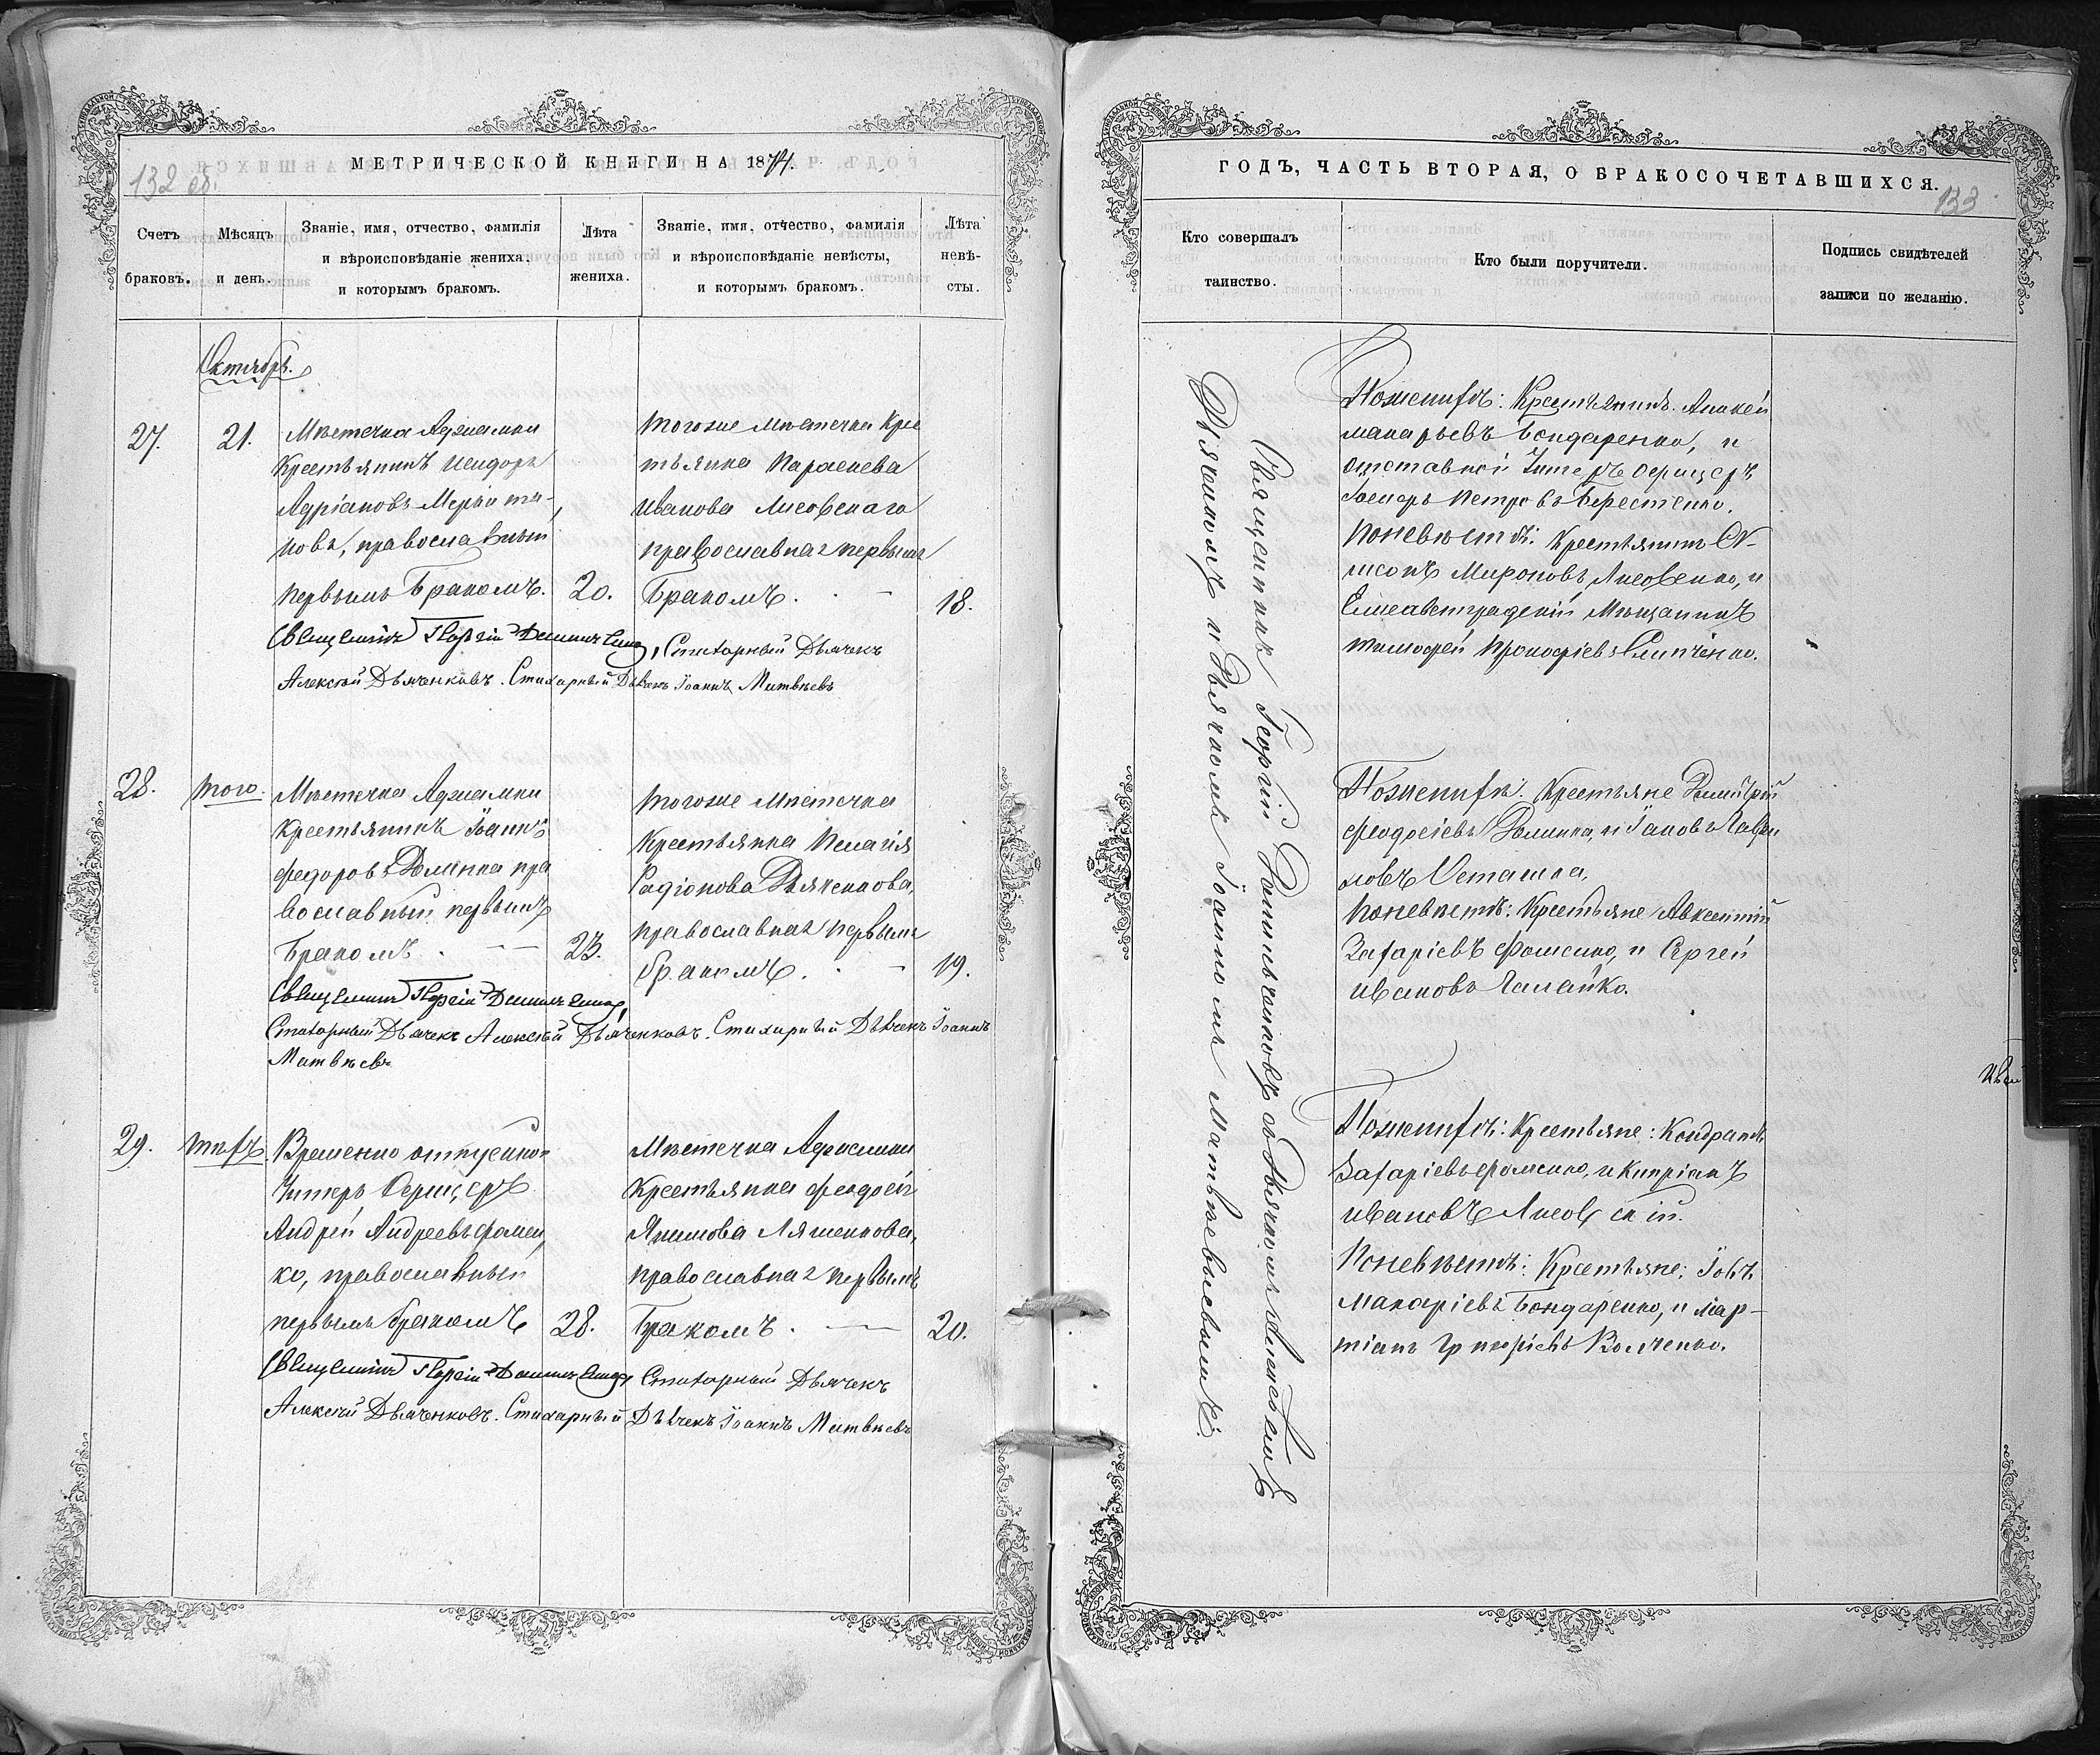 132 об.
МЕТРИЧЕСКОЙ КНИГИ НА 1874.
Счетъ браковъ.
Мѣсяцъ и день.
Званіе, имя, отчество, фамилія
и вѣроисповѣданіе жениха,
и которымъ бракомъ.
Лѣта жениха.
Званіе, имя, отчество, фамилія
и вѣроисповѣданіе невѣсты,
и которымъ бракомъ.
Лѣта невѣ-
сты.
Октябрь.
27.
21.
Мѣстечка Аджамки
Крестьянинъ Исидоръ
Адріановъ
новъ, православный
первымъ бракомъ.
20.
Тогоже мѣстечка Крес
тьянка Параскева
Иванова Лисовскаго
православная первымъ
бракомъ.
18.
Священникъ Георгій Стихарный Дьячекъ
Алексѣй Дьяченковъ. Стихарный Дьячекъ Іоаннъ Матвѣевъ
28.
того.
Мѣстечка Аджамки
Крестьянинъ Іоаннъ
Федоровъ Долинка пра
вославный первымъ
бракомъ.
23.
Тогоже мѣстечка
Крестьянка Пелагія
Радіонова Дьяченкова,
православная первымъ
бракомъ.
19.
Священникъ Георгій
Стихарный Дьячекъ Алексѣй Дьяченковъ. Стихарный Дьячекъ Іоаннъ
Матвѣевъ
29.
тѣхъ
Временно отпускной
Унтеръ Офицеръ
Андрей Андреевъ Фомен
ко, православный
первымъ бракомъ
28.
Мѣстечка Аджамки
Крестьянка Феодосія
Якимова Ляшенкова,
православная первымъ
бракомъ.
20.
Священникъ Георгій Стихарный Дьячекъ
Алексѣй Дьяченковъ. Стихарный Дьячекъ Іоаннъ Матвѣевъ
ГОДЪ, ЧАСТЬ ВТОРАЯ, О БРАКОСОЧЕТАВШИХСЯ.
133
Кто совершалъ
таинство.
Кто были поручители.
Подпись свидѣтелей
записи по желанію.
Священникъ Георгій съ Дьячкомъ Алексѣемъ
Дьяченкомъ и Дьячкомъ Іоанномъ Матвѣевымъ.
По женихѣ: Крестьянинъ
Макарьевъ Бондаренко, и
отставной Унтеръ Офицеръ
Петровъ Берестенко.
По невѣстѣ: Крестьянинъ
Мироновъ Лисовенко, и
Елисаветградскій Мѣщанинъ
Тимофей Прокофіевъ Слипченко.
По женихѣ: Крестьяне Димитрій
Феодосіевъ Долинка, и Іаковъ
Осташка.
По невѣстѣ: Крестьяне Авксентій
Захаріевъ Фоменко, и Сергей
Ивановъ Галайко.
По женихѣ: Крестьяне: Кондратъ
Захаріевъ Фоменко, и Кипріанъ
Ивановъ Лисовскій.
По невѣстѣ: Крестьяне: Іовъ
Макаріевъ Бондаренко, и Мар-
тіанъ Григоріевъ Волченко.